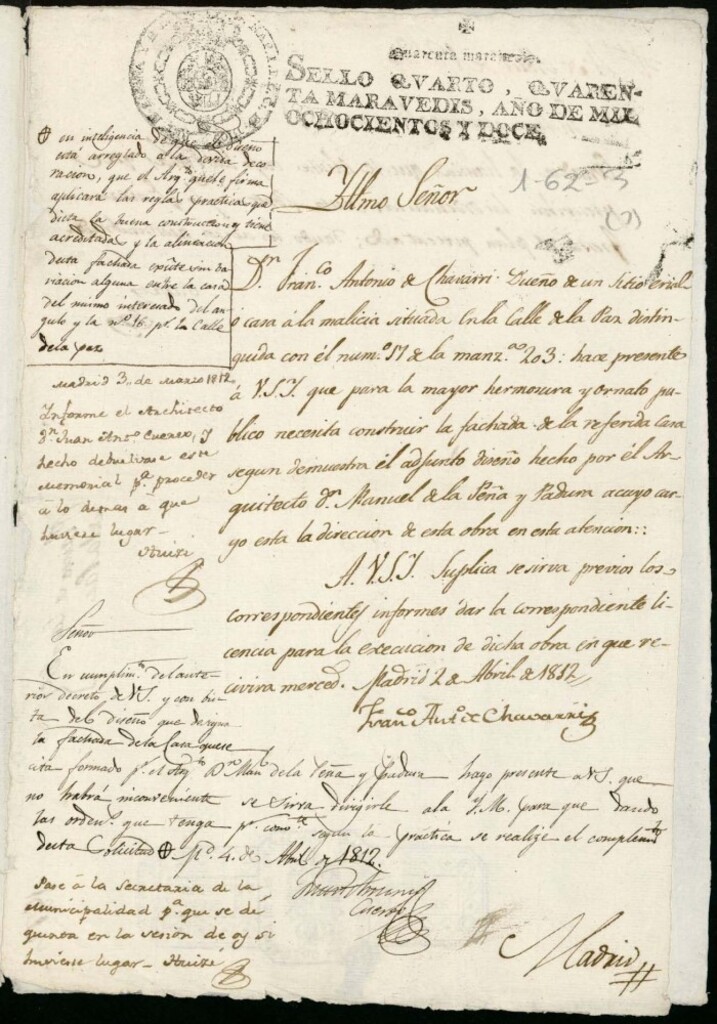 Quarenta maravedis.
SELLO QVARTO, QVAREN-
TA MARAVEDIS, AÑO DE MIL
OCHOCIENTOS Y DOCE.
1-62-3
(7)
Yllmo Señor
Dn. Franco. Antonio de Chavarri Dueño de un Sitio erial
o casa á la malicia situada en la Calle de la Paz distin-
guida con él num.o 17 de la manz.na 203: hace presente
á V.S.Y. que para la mayor hermosura y ornato pu-
blico necesita construir la fachada de la referida Casa
segun demuestra el adjunto diseño hecho por él Ar-
quitecto dn. Manuel de la Peña y Padura acuyo car-
go esta la direccion de esta obra en esta atencion::
A. V.S.Y. Suplica se sirva previos los
correspondientes informes dar la correspondiente li-
cencia para la execucion de dicha obra en que re-
civira merced. Madrid 2 de Abril de 1812,,
Franco. Anto. de Chavarri
en inteligencia de que el diseño
está arreglado a la devida deco-
racion, que el Arqto. que le firma
aplicará las reglas practica que
dicta la buena construccion y tiene
acreditada y la alineacion
desta fachada existe sin va-
riacion alguna entre la casa
del mismo interesado del an-
gulo y la no. 16 pr. la Calle
dela paz
Madrid 3 de Marzo 1812
Informe el Architecto
dn. Juan Anto. Cuervo, y
hecho debuelvase este
memorial pa. proceder
á lo demas a que
huviese lugar-
Señor
En cumplimto. del ante-
rior decreto de VS. y con bis-
ta del Diseño que designa
la fachada dela Casa que se
cita formado pr. el Arqto. Dn. Manl. dela Peña y Padura hago presente a VS. que
no habrá inconveniente se sirva dirigirle ala Y.M. para que dando
las ordens. que tenga pr. combte. segun la practica se realize el complemto.
desta Solicitud Md. 4. de Abril de 1812.
Cuervo
Pase á la Secretaria de la
Municipalidad pa. que se dé
quenta en la sesion de oy si
huviese lugar-
Madrid